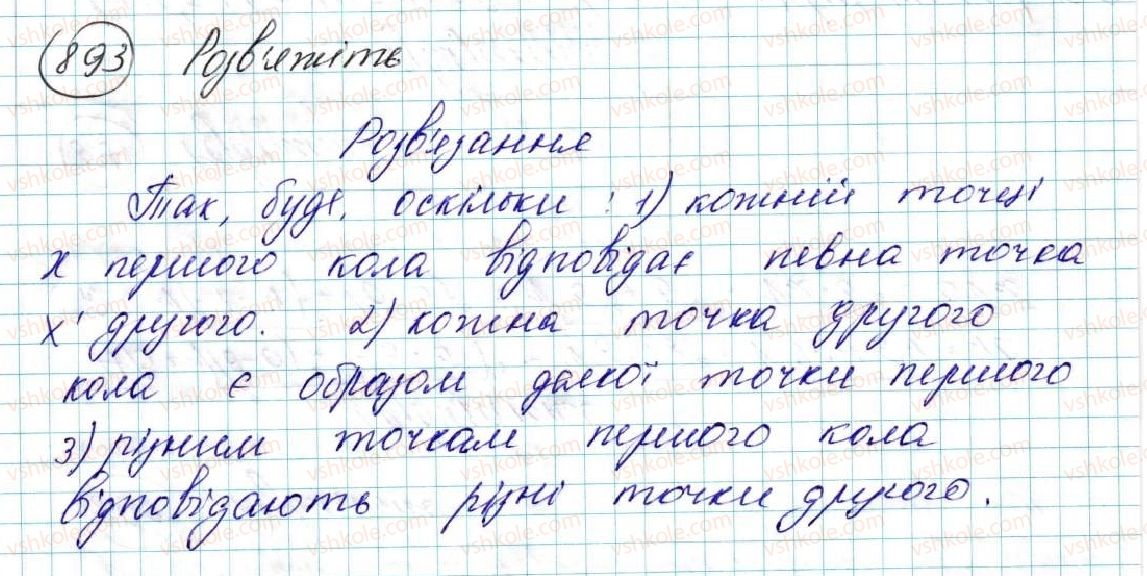 893 Розв'яжіть
Розв'язання
Так, буде, оскільки : 1) кожній точці
X першого кола відповідає певна точка
X' другого. 2) кожна точка другого
кола є образом деякої точки першого
3) різним точкам першого кола
відповідають різні точки другого.